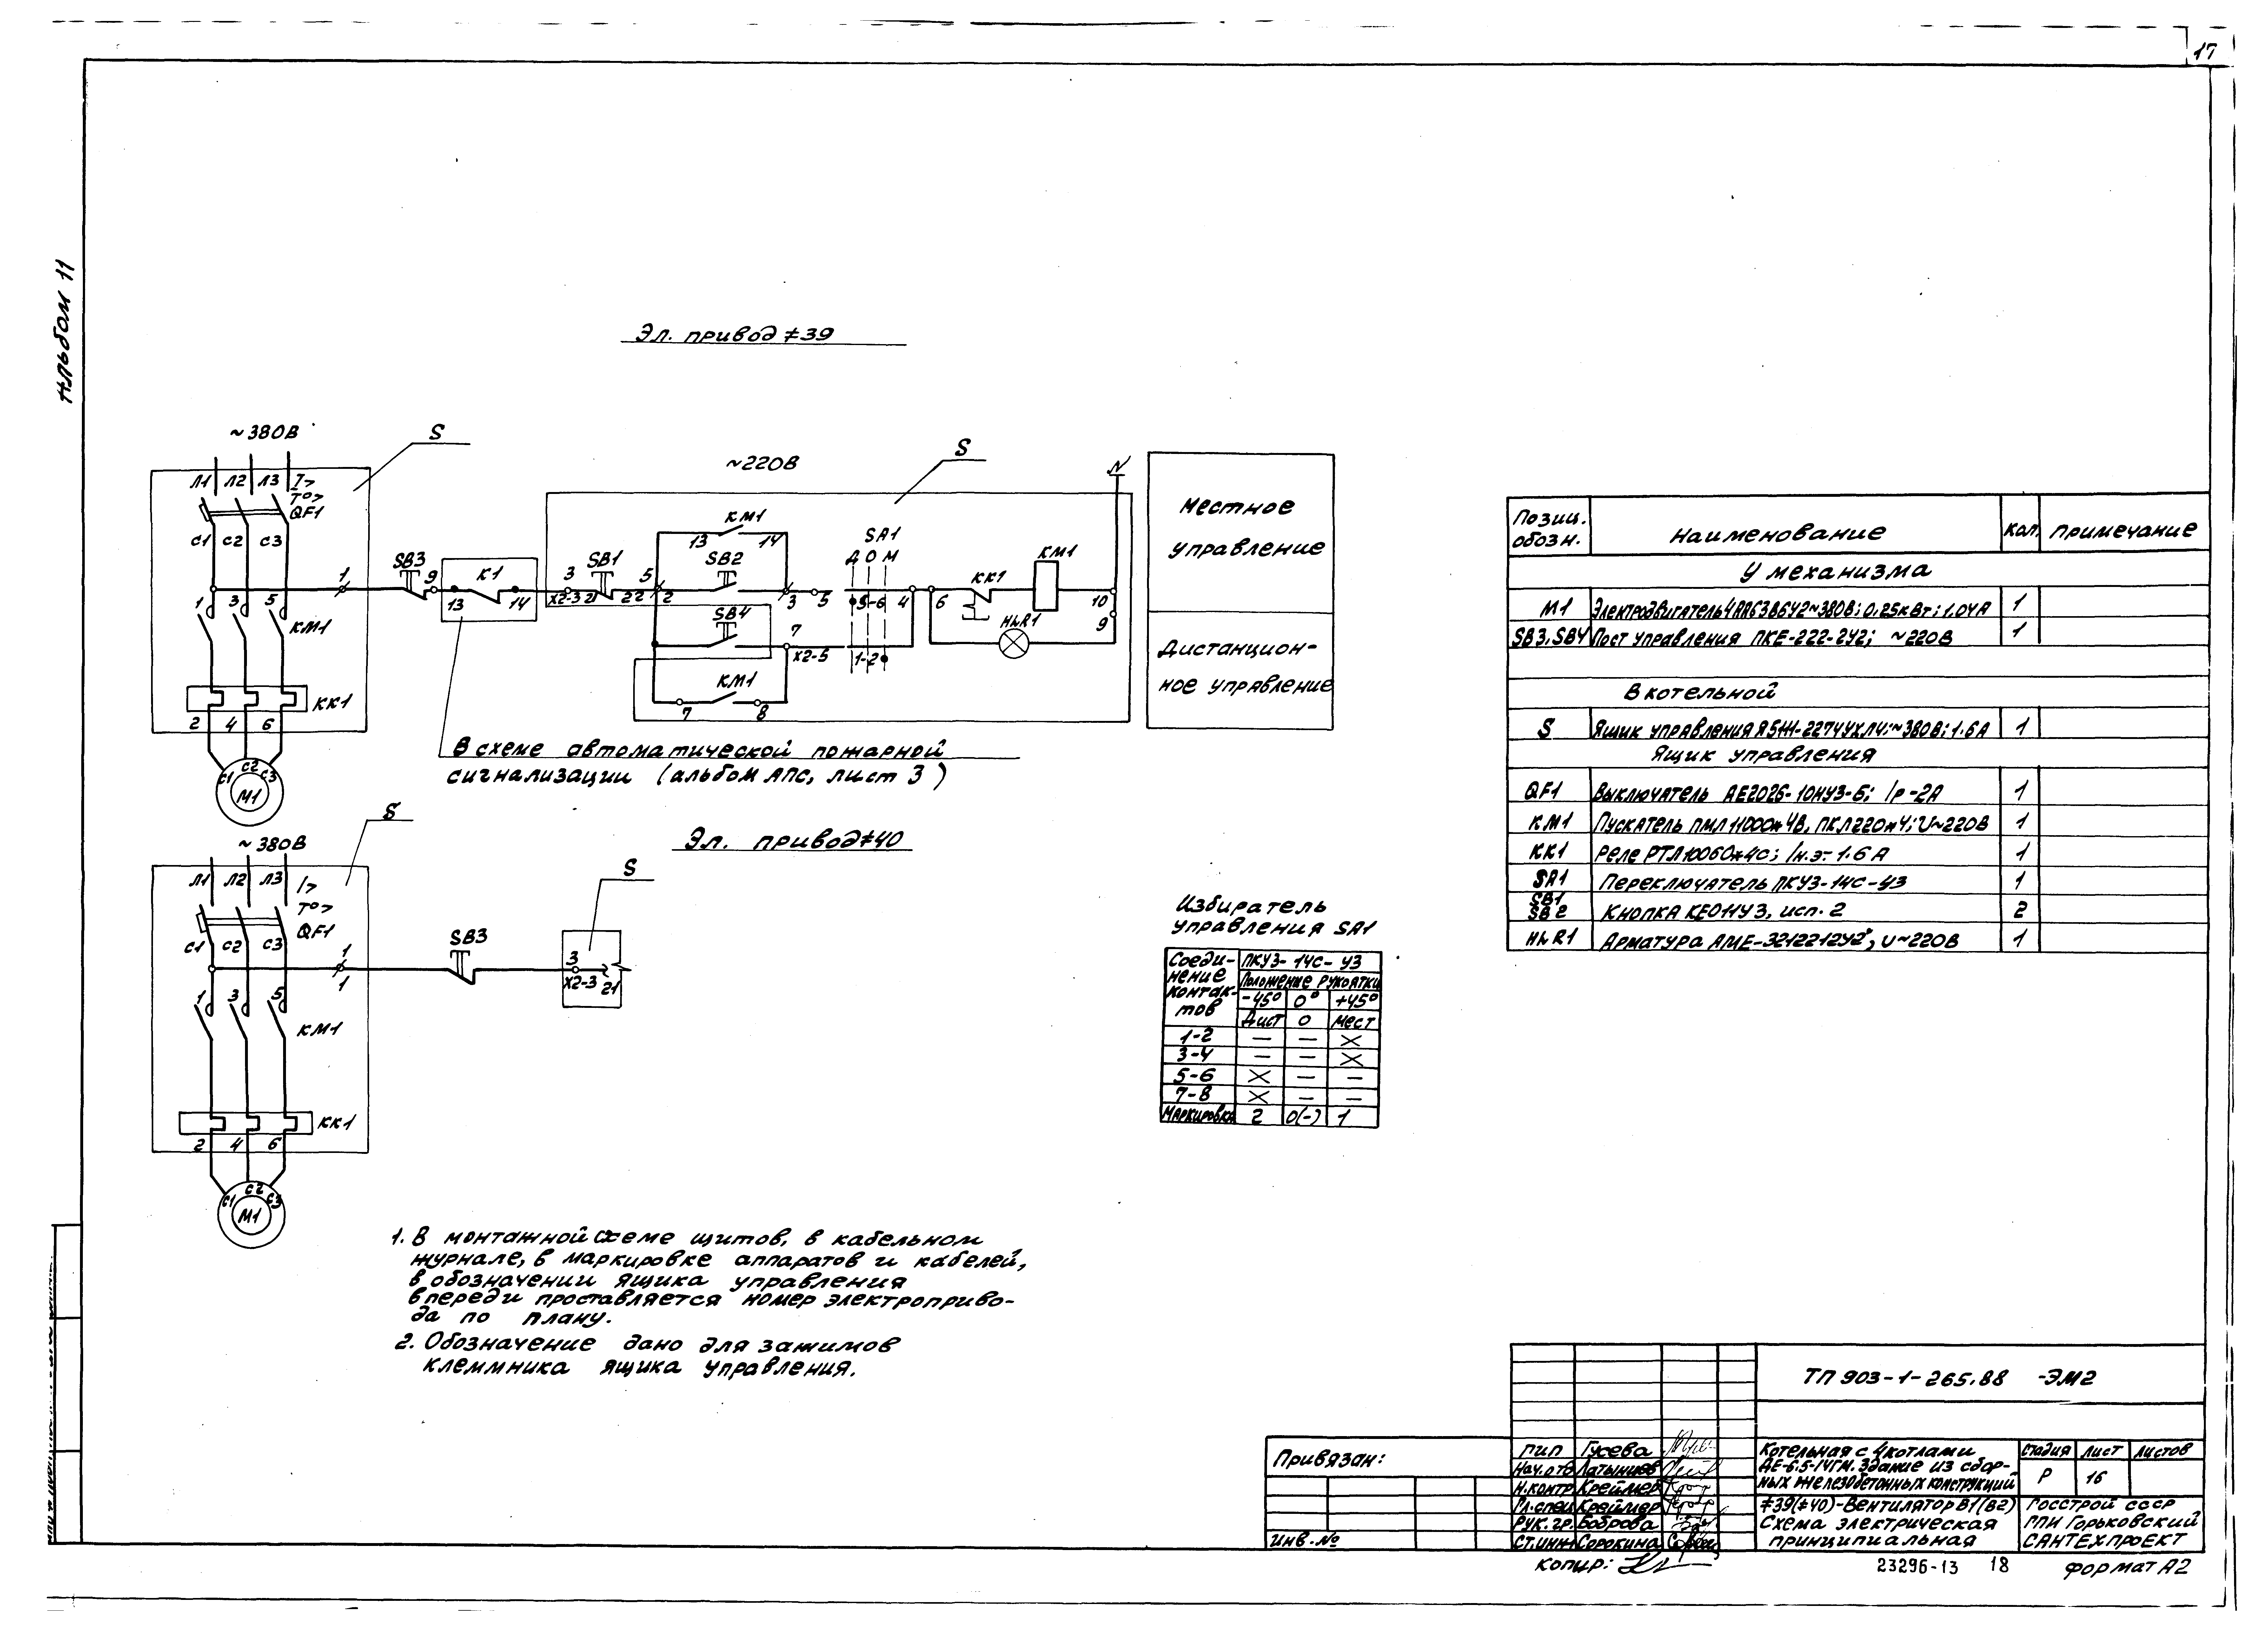 17
Альбом 11
Эл. привод ≠39
~380В
S
Л1 Л2 Л3 I>
T°>
QF1
C1 C2 C3
1
1 3 5
КМ1
КК1
2 4 6
C1 C2 C3
М1
SB3
9
К1
13 14
~220В
S
3
SB1
X2-3 21 22
5
2
КМ1
13 14
SB2
3 5
SB4
7
X2-5
КМ1
7 8
SA1
Д О М
5-6
1-2
4 6
КК1
КМ1
HLR1
N
10
9
Местное
управление
Дистанцион-
ное управление
В схеме автоматической пожарной
сигнализации (альбом АПС, лист 3)
Эл. привод≠40
~380В
S
Л1 Л2 Л3 I>
T°>
QF1
C1 C2 C3
1
1
1 3 5
КМ1
КК1
2 4 6
C1 C2 C3
М1
SB3
S
3
X2-3 21
Избиратель
управления SA1
Соеди-
нение
контак-
тов
ПКУ3-14С-У3
Положение рукоятки
-45° 0° +45°
Дист 0 мест
1-2 — — X
3-4 — — X
5-6 X — —
7-8 X — —
Маркировка 2 0(-) 1
Позиц. обозн. Наименование Кол. Примечание
У механизма
М1 Электродвигатель 4АА63В6У2~380В; 0.25кВт; 1.04А 1
SB3, SB4 Пост управления ПКЕ-222-2У2; ~220В 1
В котельной
S Ящик управления Я5111-2274УХЛ4; ~380В; 1.6А 1
Ящик управления
QF1 Выключатель АЕ2026-10НУ3-Б; Iр-2А 1
КМ1 Пускатель ПМЛ11000*4В, ПКЛ220*4; U~220В 1
КК1 Реле РТЛ10060*4С; Iн.э.-1.6А 1
SA1 Переключатель ПКУ3-14С-У3 1
SB1 SB2 Кнопка КЕ011У3, исп. 2 2
HLR1 Арматура АМЕ-321221У2, U~220В 1
1. В монтажной схеме щитов, в кабельном
журнале, в маркировке аппаратов и кабелей,
в обозначении ящика управления
впереди проставляется номер электропривo-
да по плану.
2. Обозначение дано для зажимов
клеммника ящика управления.
Привязан:
Инв. №
ТП 903-1-265.88 -ЭМ2
ГИП Гусева
Нач. отд Латынцев
Н.контр. Креймер
Гл. спец Креймер
Рук. гр. Боброва
Ст. инж Сорокина
Котельная с 4 котлами
ДЕ-6,5-14ГМ. Здание из сбор-
ных железобетонных конструкций
Стадия Лист Листов
Р 16
≠39(≠40)-Вентилятор В1(В2)
Схема электрическая
принципиальная
Госстрой СССР
ГПИ Горьковский
САНТЕХПРОЕКТ
Копир:
23296-13 18
Формат А2